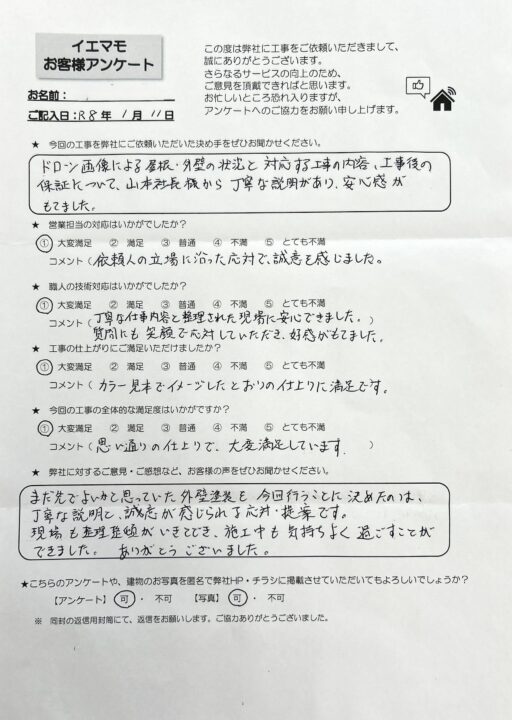 イエマモ
お客様アンケート
この度は弊社に工事をご依頼いただきまして、
誠にありがとうございます。
さらなるサービスの向上のため、
ご意見を頂戴できればと思います。
お忙しいところ恐れ入りますが、
アンケートへのご協力をお願い申し上げます。
お名前：
ご記入日：R8年 1月 11日
★ 今回の工事を弊社にご依頼いただいた決め手をぜひお聞かせください。
ドローン画像による屋根・外壁の状況と対応する工事の内容、工事後の
保証について、山本社長様から丁寧な説明があり、安心感が
もてました。
★ 営業担当の対応はいかがでしたか？
① 大変満足 ② 満足 ③ 普通 ④ 不満 ⑤ とても不満
コメント（依頼人の立場に沿った応対で、誠意を感じました。
★ 職人の技術対応はいかがでしたか？
① 大変満足 ② 満足 ③ 普通 ④ 不満 ⑤ とても不満
コメント（丁寧な仕事内容と整理された現場に安心できました。）
質問にも笑顔で応対していただき、好感がもてました。
★ 工事の仕上がりにご満足いただけましたか？
① 大変満足 ② 満足 ③ 普通 ④ 不満 ⑤ とても不満
コメント（カラー見本でイメージしたとおりの仕上りに満足です。
★ 今回の工事の全体的な満足度はいかがですか？
① 大変満足 ② 満足 ③ 普通 ④ 不満 ⑤ とても不満
コメント（思い通りの仕上りで、大変満足しています。）
★ 弊社に対するご意見・ご感想など、お客様の声をぜひお聞かせください。
まだ先でよいかと思っていた外壁塗装を今回行うことに決めたのは、
丁寧な説明と、誠意が感じられる応対・提案です。
現場も整理整頓がいきとどき、施工中も気持ちよく過ごすことが
できました。 ありがとうございました。
★こちらのアンケートや、建物のお写真を匿名で弊社HP・チラシに掲載させていただいてもよろしいでしょうか？
【アンケート】 可 ・ 不可 【写真】 可 ・ 不可
※ 同封の返信用封筒にて、返信をお願いします。ご協力ありがとうございました。